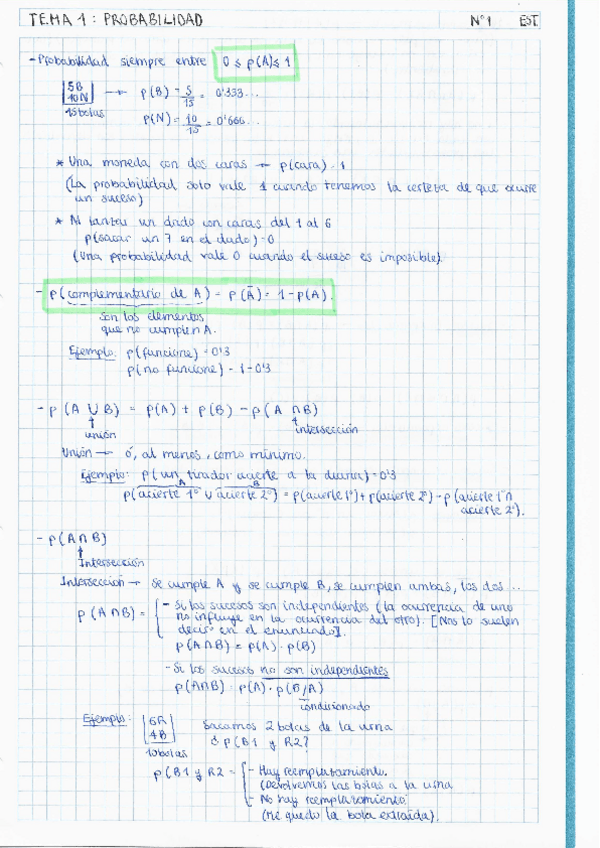 TEMA 1 : PROBABILIDAD N°1 EST
- Probabilidad siempre entre 0 ≤ p(A) ≤ 1
5B
10N
15 bolas
→ p(B) = 5/15 = 0'333...
p(N) = 10/15 = 0'666...
* Una moneda con dos caras → p(cara) = 1
(La probabilidad solo vale 1 cuando tenemos la certeza de que ocurre
un suceso)
* Al lanzar un dado con caras del 1 al 6
p(sacar un 7 en el dado) = 0
(Una probabilidad vale 0 cuando el suceso es imposible)
- p(complementario de A) = p(Ā) = 1 - p(A).
Son los elementos
que no cumplen A.
Ejemplo: p(funcione) = 0'3
p(no funcione) = 1 - 0'3
- p(A ∪ B) = p(A) + p(B) - p(A ∩ B)
↑ unión ↑ intersección
Unión → ó, al menos, como mínimo.
Ejemplo: p(un tirador acierte a la diana) = 0'3
A B
p(acierte 1° ∪ acierte 2°) = p(acierte 1°) + p(acierte 2°) - p(acierte 1° ∩
acierte 2°).
- p(A ∩ B)
↑
Intersección
Intersección → se cumple A y se cumple B, se cumplen ambas, los dos ...
p(A ∩ B) = { - Si los sucesos son independientes (la ocurrencia de uno
no influye en la ocurrencia del otro). [Nos lo suelen
decir en el enunciado].
p(A ∩ B) = p(A) · p(B)
- Si los sucesos no son independientes
p(A ∩ B) = p(A) · p(B/A)
condicionado
Ejemplo: 6R
4B
10 bolas
Sacamos 2 bolas de la urna
¿ p(B1 y R2?
p(B1 y R2 = { - Hay reemplazamiento.
(Devolvemos las bolas a la urna
- No hay reemplazamiento.
(Me quedo la bola extraída).